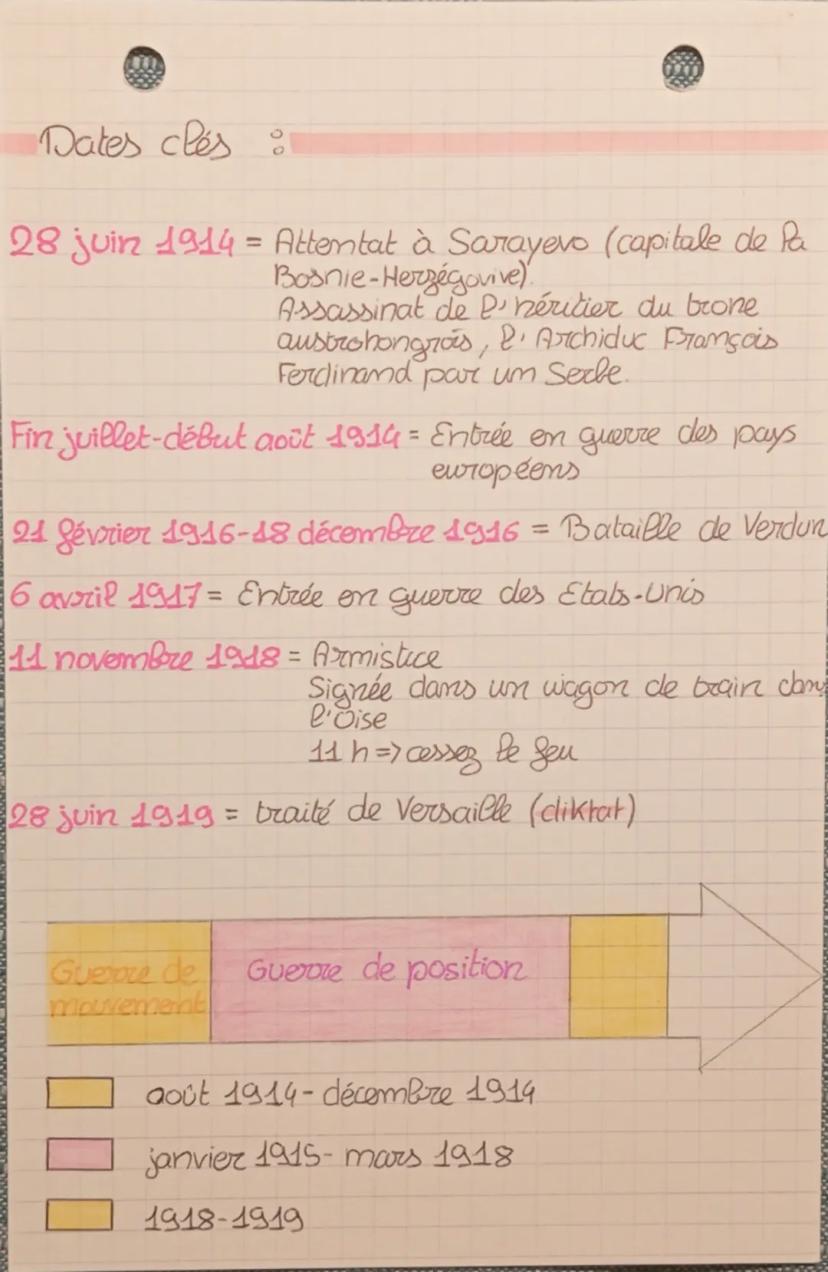 Dates clés :
28 juin 1914 = Attentat à Sarayevo (capitale de la
Bosnie-Herzégovive).
Assassinat de l'héritier du trone
austrohongrois, l'Archiduc François
Ferdinand par un Serbe.
Fin juillet-début août 1914 = Entrée en guerre des pays
européens
21 février 1916-18 décembre 1916 = Bataille de Verdun
6 avril 1917 = Entrée en guerre des Etats-Unis
11 novembre 1918 = Armistice
Signée dans un wagon de train dans
l'Oise
11 h => cessez le feu
28 juin 1919 = traité de Versaille (diktat)
Guerre de
mouvement
Guerre de position
août 1914-décembre 1914
janvier 1915-mars 1918
1918-1919